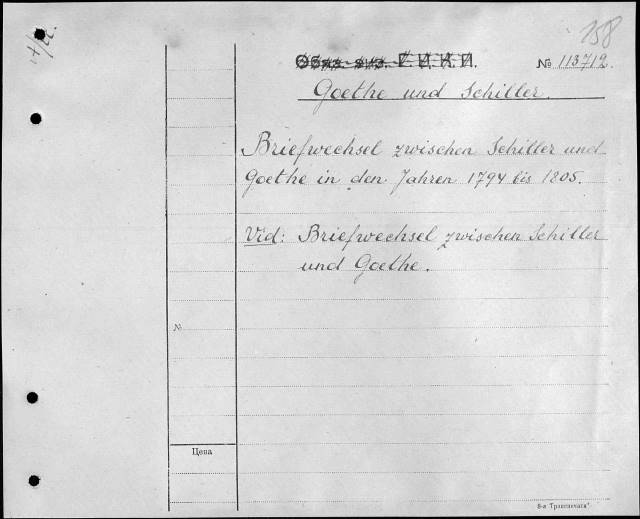 158
№ 113712.
Goethe und Schiller.
Briefwechsel zwischen Schiller und
Goethe in den Jahren 1794 bis 1805.
Vid: Briefwechsel zwischen Schiller
und Goethe.
№
Цена